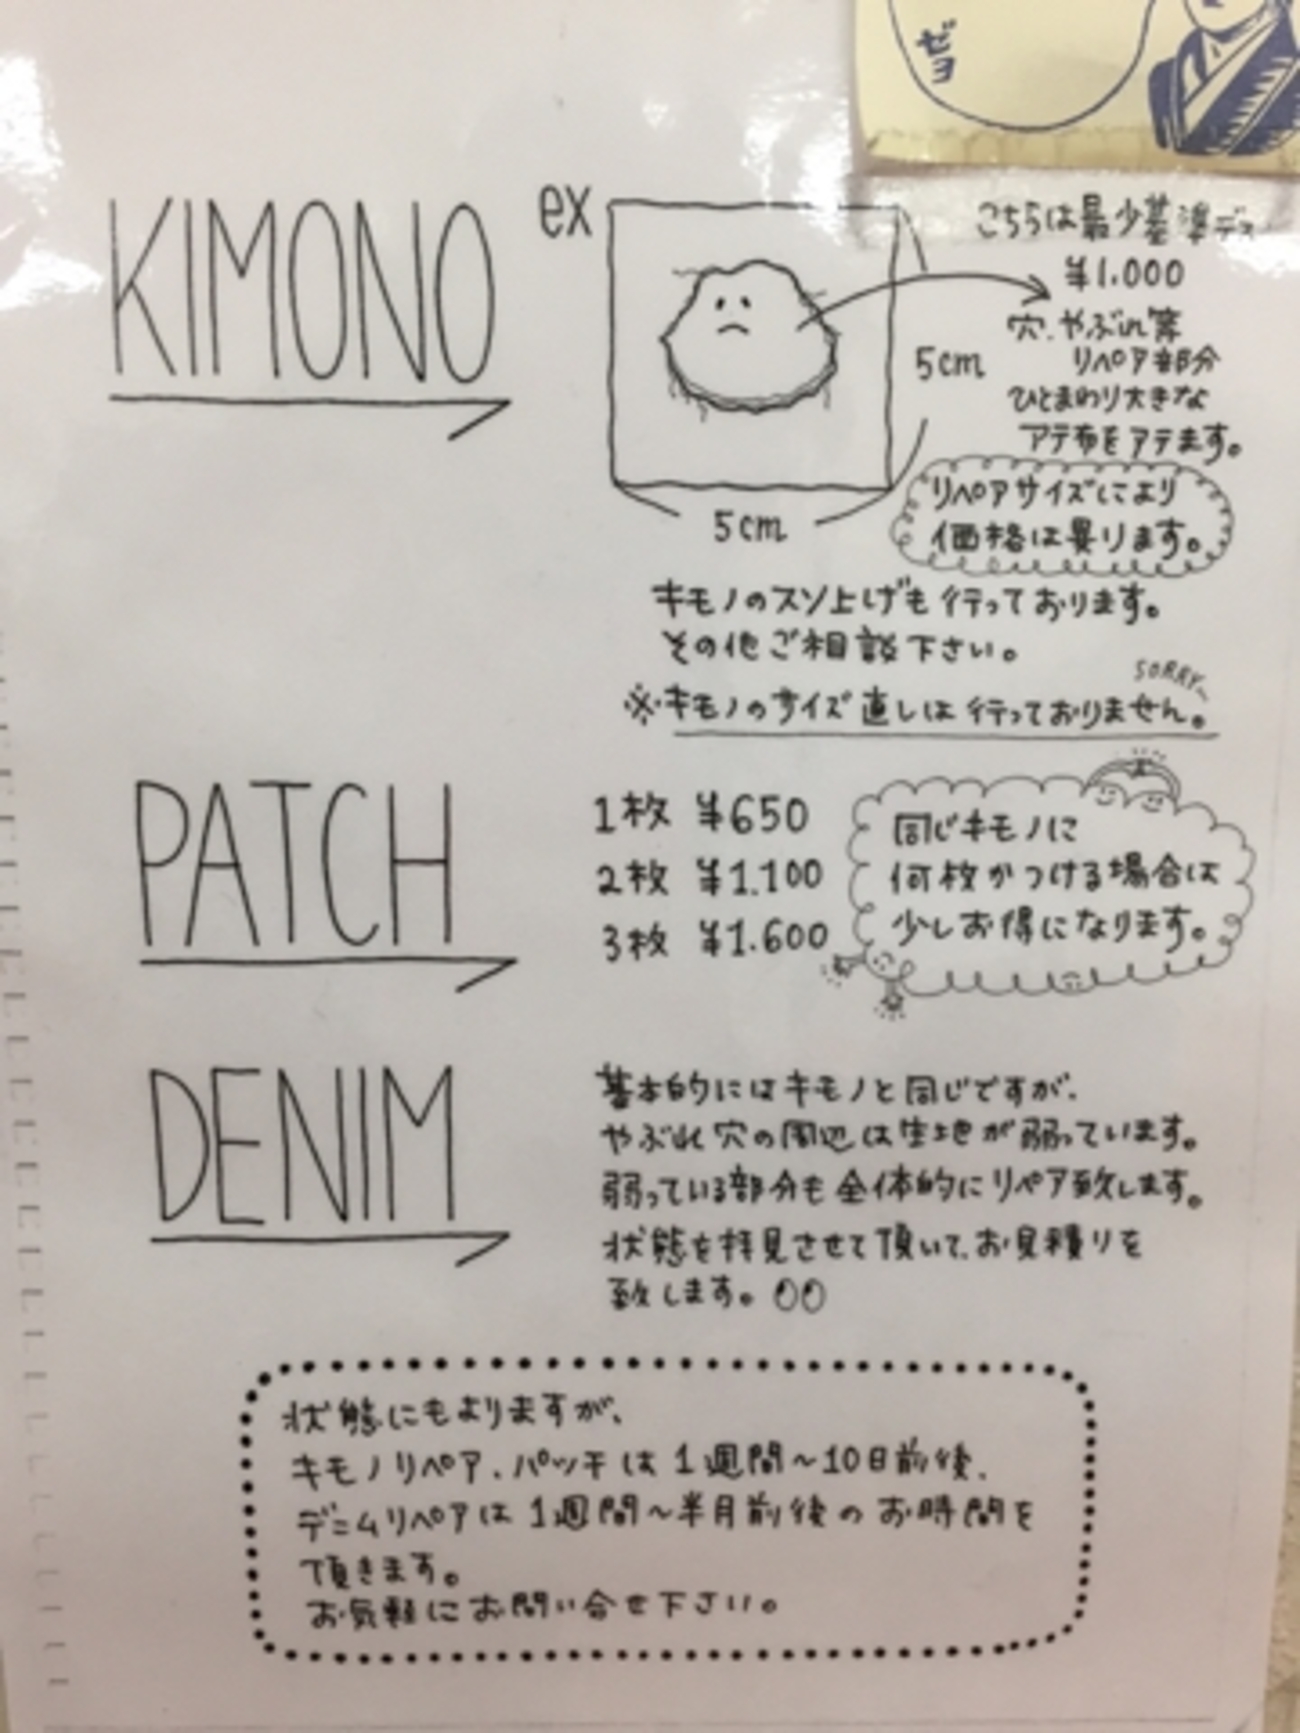 ゼヨ
KIMONO
ex
こちらは最少基準デス
¥1.000
穴.やぶれ等
リペア部分
ひとまわり大きな
アテ布をアテます。
5cm
5cm
リペアサイズにより
価格は異ります。
キモノのスソ上げも行っております。
その他ご相談下さい。
SORRY
※キモノのサイズ直しは行っておりません。
PATCH
1枚 ¥650
2枚 ¥1.100
3枚 ¥1.600
同じキモノに
何枚かつける場合は
少しお得になります。
DENIM
基本的にはキモノと同じですが、
やぶれ穴の周辺は生地が弱っています。
弱っている部分も全体的にリペア致します。
状態を拝見させて頂いて、お見積りを
致します。
状態にもよりますが、
キモノリペア、パッチは1週間～10日前後、
デニムリペアは1週間～半月前後のお時間を
頂きます。
お気軽にお問い合せ下さい。